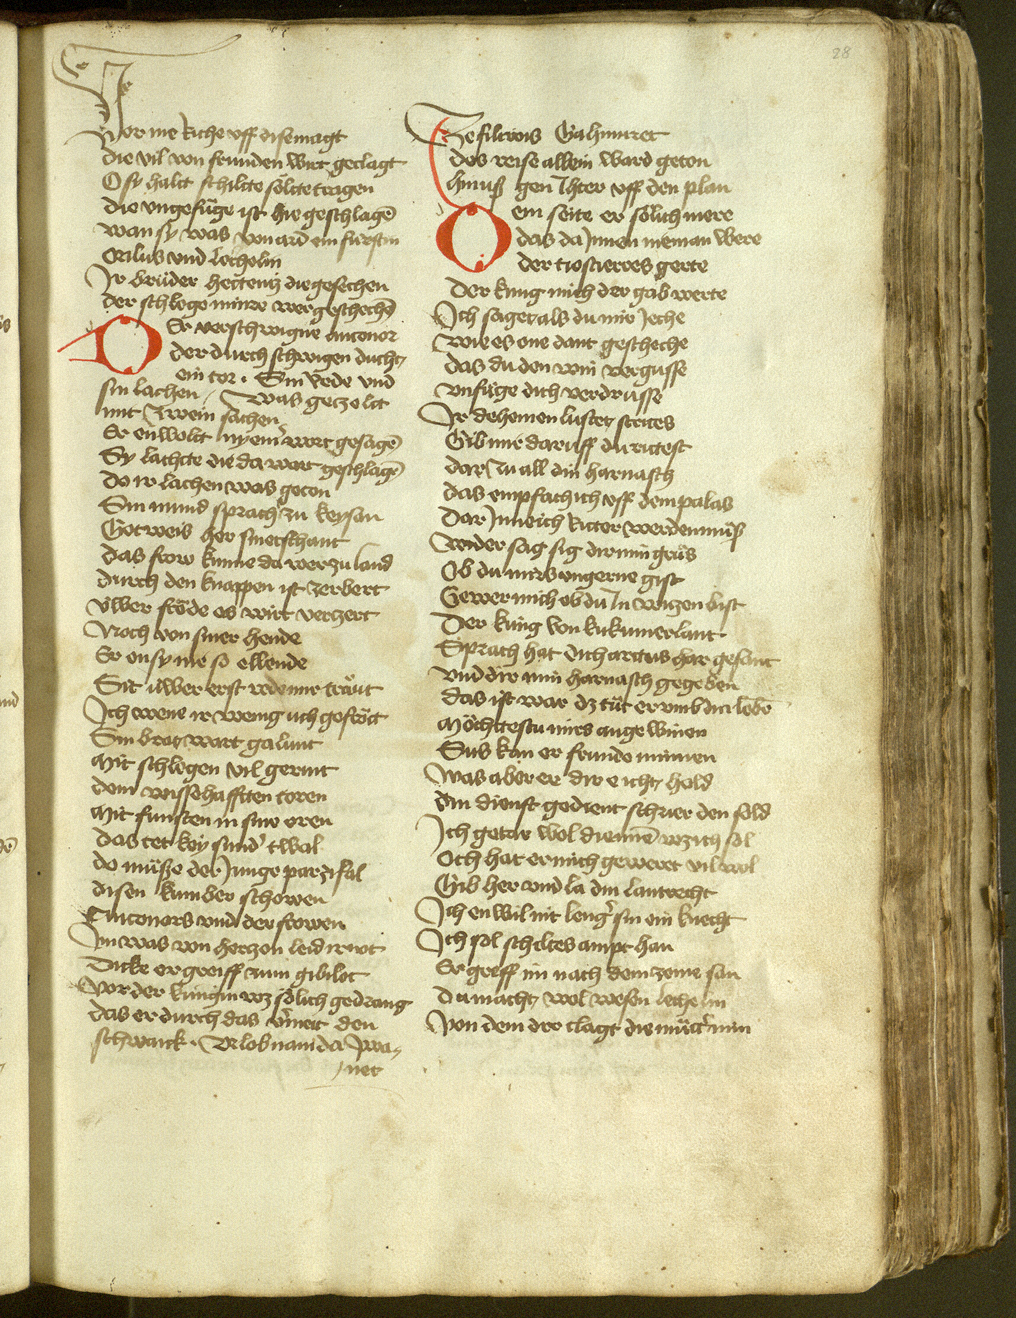 28
Vor me kiche uff dise magt
die vil von frunden wirt geclagt
O sy halt schilte sölcte tragen
die ungefüge ist hie geschlagē
wan sy was von ard ein furstin
Orilus und lecholin
Ir brüder hettentz die gesechen
der schlege minre wer geschechē
Der verschwigne antenor
der durch schwigen ducht
ein tor. Sin Rede und
sin lachen / Was gezelt
mit Zwein sachen
Er en wolt nyem̄ wort gesagē
Sy lachte die da wart geschlagē
do ir lachen was geton
Sin mund sprach zu keysan
Got weis her sinetschant
das frow kunne da wer zu land
durch den knappen ist zerbert
üwer fröde es wirt verzert
Noch von siner hende
Er en sy nie so ellende
Sit üwer erst rede mir tröut
Ich wene ir wenig uch gefröit
Sin brot wart galunt
Mit schlegen vil gerunt
dem witzehafften toren
Mit funsten in sine oren
das tet key sund' twal
do müsse der Junge parzifal
disen kumber schowen
Antenors und der frowen
Im was von herzen leid ir not
Dicke er greiff zum gibilot
Vor der kungin waz sölich gedrang
das er durch das v'meit den
schwanck. Urlob nam da Iwa-
net
Te fillerois Gahmuret
des reise allein ward geton
hinuß gen Ither uff den plan
Dem seite er sölich mere
das da Innen nieman were
der tiostierens gerte
Der kung mich der gab werte
Ich saget als du mir Jeche
wie es one danc gescheche
das du den win vergusse
unfüge dich verdrusse
Ir dehemen lustet strites
Gib mir daruff du ritest
dar Zu all din harnasch
das empfach ich uff dem palas
dar Inne ich Ritter werden müß
wider sag sig dir min grüs
Ob du mirs ungerne gist
Gewer mich ob du In witzen bist
Der kung von kukumerlant
Sprach hat dich artus har gesant
und dir min harnasch gegeben
das ist war dz tüt er umb din lebē
Möchtestu mirs ange winen
Sus kan er frunde minnen
was aber er dir e icht hold
din dienst gedient schier den sold
Ich getar wol dienen wz ich sol
Och hat er mich geweret vil wol
Gib her und la din lantrecht
Ich en wil nit leng' sin ein knecht
Ich sol schiltes ampt han
Er greff im nach dem zome san
du macht wol wesen lechelin
Von dem dir clagt die mütt' min